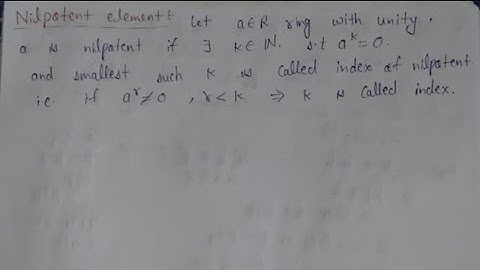 Nilpotent element : Let a ∈ R ring with unity,
a is nilpotent if ∃ k ∈ ℕ. s.t a^k = 0.
and smallest such k is called index of nilpotent
i.e. if a^r ≠ 0 , r < k ⇒ k is called index.